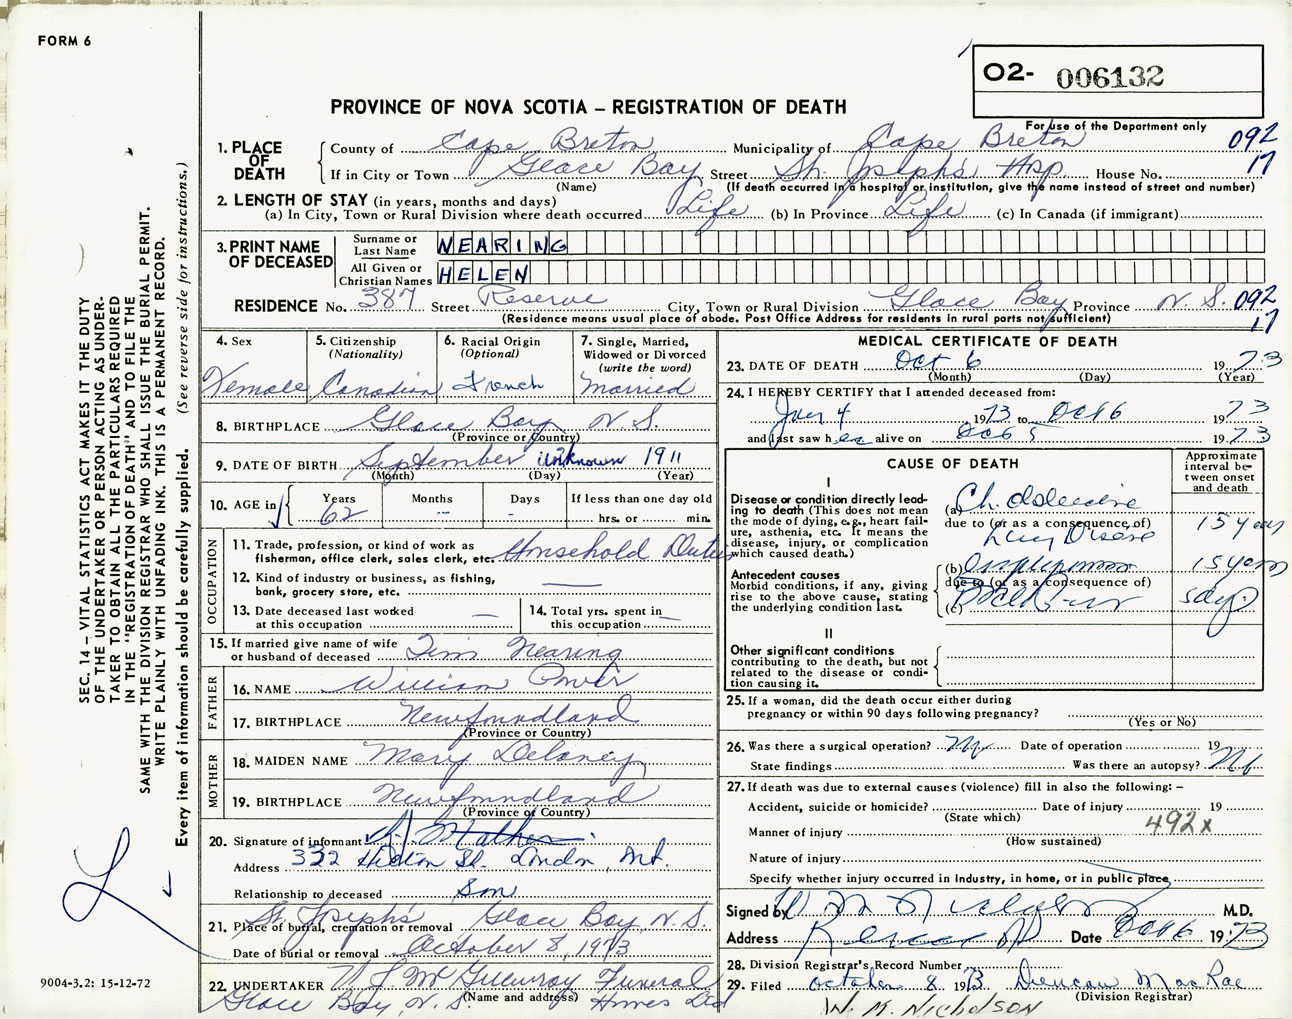 FORM 6
O2- 006132
PROVINCE OF NOVA SCOTIA – REGISTRATION OF DEATH
For use of the Department only
1. PLACE OF DEATH
County of Cape Breton Municipality of Cape Breton 092
If in City or Town Glace Bay Street St. Joseph's Hsp House No. 17
(Name) (If death occurred in a hospital or institution, give the name instead of street and number)
2. LENGTH OF STAY (in years, months and days)
(a) In City, Town or Rural Division where death occurred Life (b) In Province Life (c) In Canada (if immigrant)
3. PRINT NAME OF DECEASED
Surname or Last Name NEARING
All Given or Christian Names HELEN
RESIDENCE No. 387 Street Reserve City, Town or Rural Division Glace Bay Province N. S. 092
(Residence means usual place of abode. Post Office Address for residents in rural parts not sufficient) 17
4. Sex
Female
5. Citizenship
(Nationality)
Canadian
6. Racial Origin
(Optional)
French
7. Single, Married,
Widowed or Divorced
(write the word)
Married
8. BIRTHPLACE Glace Bay N. S.
(Province or Country)
9. DATE OF BIRTH September unknown 1911
(Month) (Day) (Year)
10. AGE in
Years Months Days If less than one day old
62 – – hrs. or min.
OCCUPATION
11. Trade, profession, or kind of work as
fisherman, office clerk, sales clerk, etc. Household Duties
12. Kind of industry or business, as fishing,
bank, grocery store, etc. —
13. Date deceased last worked
at this occupation —
14. Total yrs. spent in
this occupation —
15. If married give name of wife
or husband of deceased Tim Nearing
FATHER
16. NAME William Power
17. BIRTHPLACE Newfoundland
(Province or Country)
MOTHER
18. MAIDEN NAME Mary Delaney
19. BIRTHPLACE Newfoundland
(Province or Country)
20. Signature of informant
Address 332 St. London, Ont.
Relationship to deceased Son
21. Place of burial, cremation or removal St. Joseph's Glace Bay N. S.
Date of burial or removal October 8, 1973
22. UNDERTAKER Funeral
Glace Bay, N. S. (Name and address) Homes Ltd
MEDICAL CERTIFICATE OF DEATH
23. DATE OF DEATH Oct 6 1973
(Month) (Day) (Year)
24. I HEREBY CERTIFY that I attended deceased from:
4 1973 to Oct 6 1973
and last saw h er alive on Oct 5 1973
CAUSE OF DEATH
Approximate interval between onset and death
I
Disease or condition directly leading to death (This does not mean the mode of dying, e.g., heart failure, asthenia, etc. It means the disease, injury, or complication which caused death.)
(a) Ch.
due to (or as a consequence of) 15 years
Lung Disease
Antecedent causes
Morbid conditions, if any, giving rise to the above cause, stating the underlying condition last.
(b) 15 years
due to (or as a consequence of)
(c) days
II
Other significant conditions
contributing to the death, but not related to the disease or condition causing it.
25. If a woman, did the death occur either during
pregnancy or within 90 days following pregnancy?
(Yes or No)
26. Was there a surgical operation? No Date of operation 19
State findings Was there an autopsy? No
27. If death was due to external causes (violence) fill in also the following: –
Accident, suicide or homicide? Date of injury 19
(State which)
Manner of injury 492x
(How sustained)
Nature of injury
Specify whether injury occurred in industry, in home, or in public place
Signed by M.D.
Address Date Oct 6 1973
28. Division Registrar's Record Number
29. Filed October 8 1973 Duncan MacRae
(Division Registrar)
W. M. NICHOLSON
SEC. 14 – VITAL STATISTICS ACT MAKES IT THE DUTY
OF THE UNDERTAKER OR PERSON ACTING AS UNDER-
TAKER TO OBTAIN ALL THE PARTICULARS REQUIRED
IN THE "REGISTRATION OF DEATH" AND TO FILE THE
SAME WITH THE DIVISION REGISTRAR WHO SHALL ISSUE THE BURIAL PERMIT.
WRITE PLAINLY WITH UNFADING INK. THIS IS A PERMANENT RECORD.
Every item of information should be carefully supplied. (See reverse side for instructions.)
9004-3.2: 15-12-72